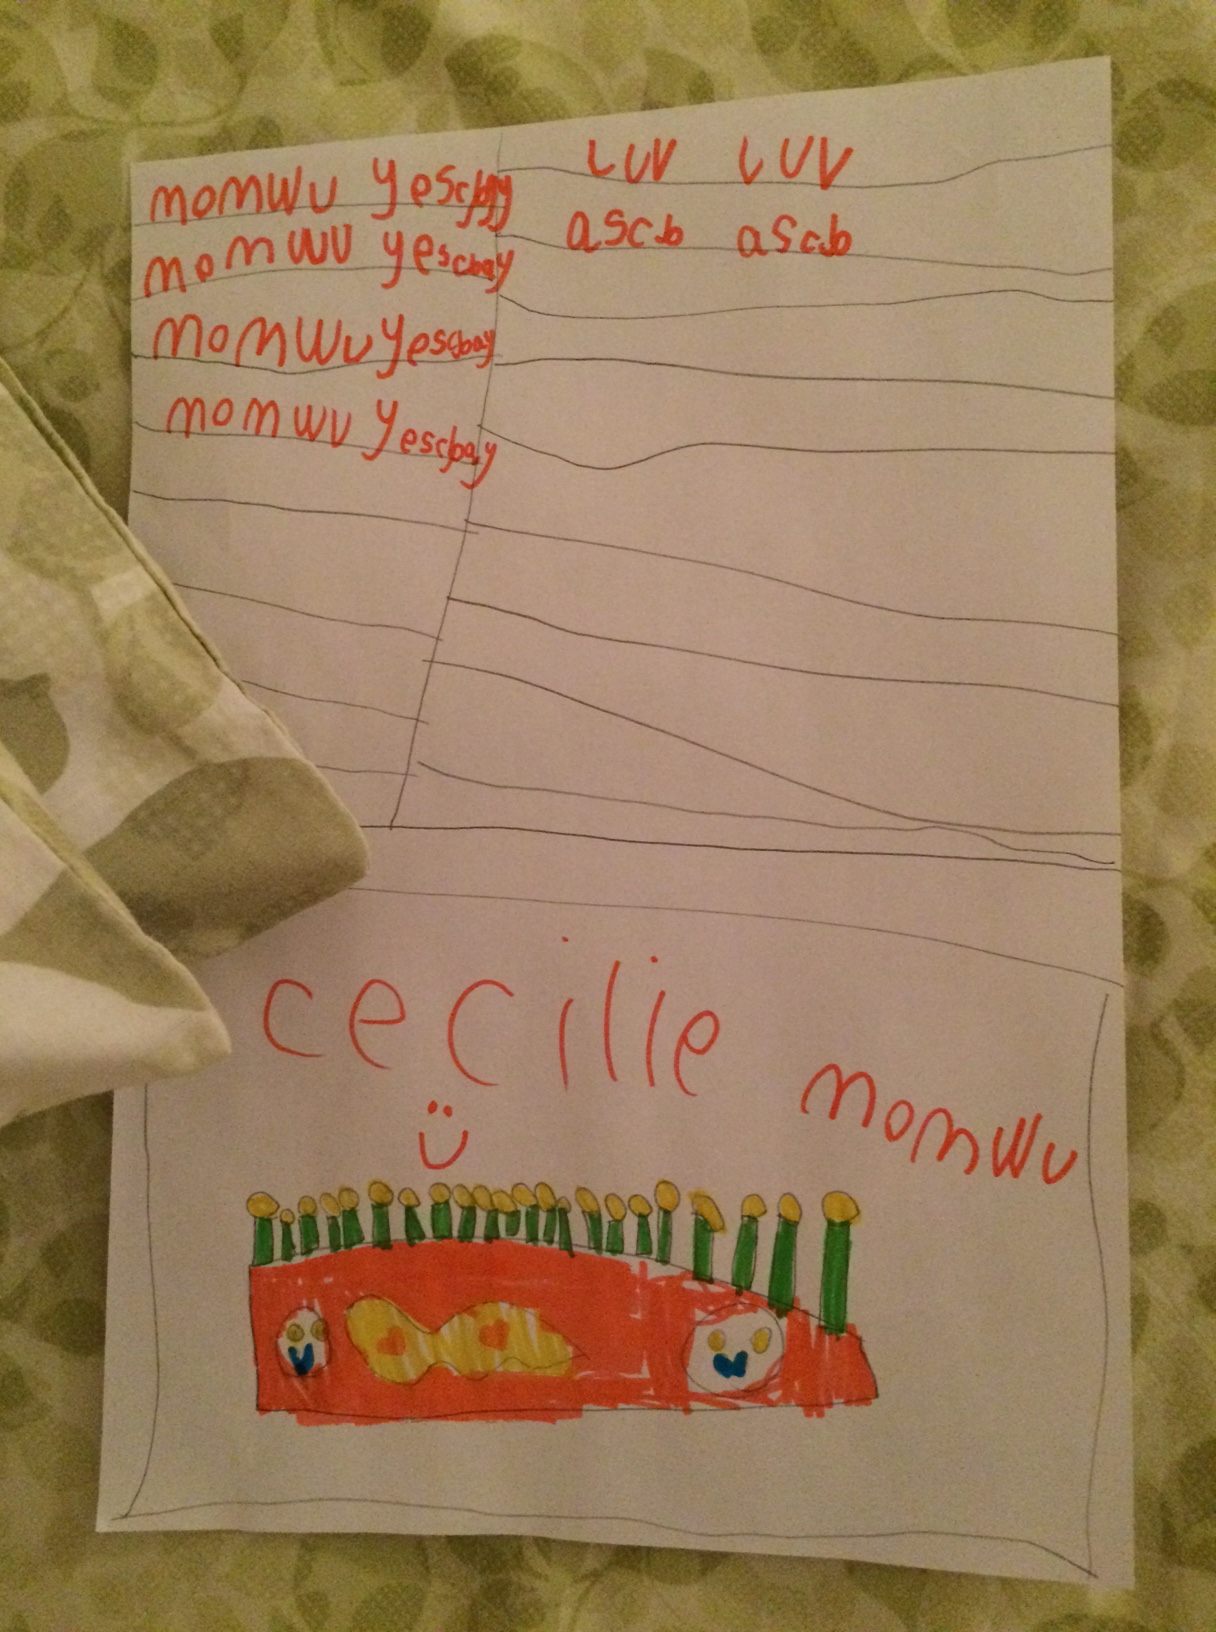 momwu yescbay
momwu yescbay
momwu yescbay
momwu yescbay
LUV LUV
ascb ascb
cecilie
momwu